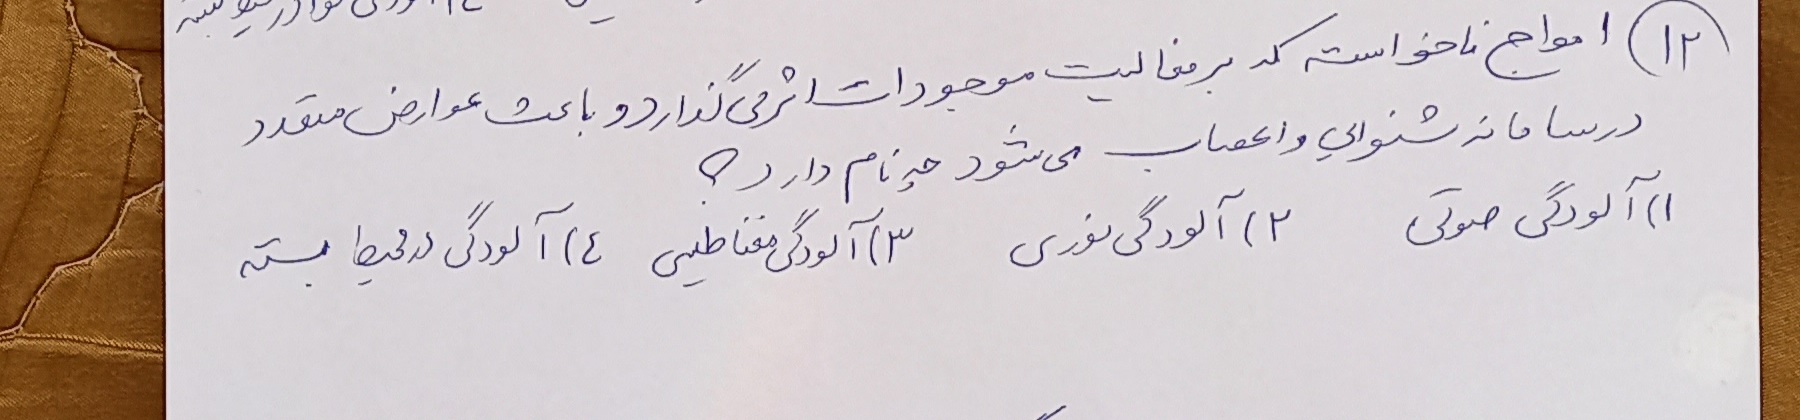 ۱۲) امواج ناخواسته که بر فعالیت موجودات اثر می‌گذارد و باعث عوارض متعدد
در سامانه شنوایی و اعصاب می‌شود چه نام دارد؟
۱) آلودگی صوتی ۲) آلودگی نوری ۳) آلودگی مغناطیسی ٤) آلودگی در محیط بسته